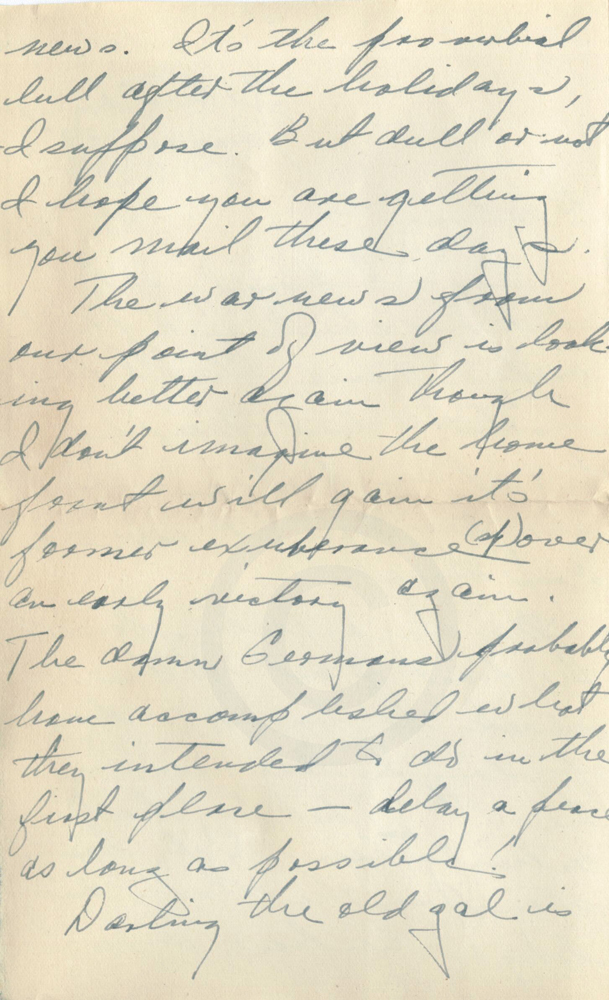 news. It's the proverbial
lull after the holidays,
I suppose. But dull or not
I hope you are getting
you mail these days.
The war news from
our point of view is look-
ing better again though
I don't imagine the home
front will gain it's
former exuberance (sp) over
an early victory again.
The damn Germans probably
have accomplished what
they intended to do in the
first place — delay a peace
as long as possible!
Darling the old gal is